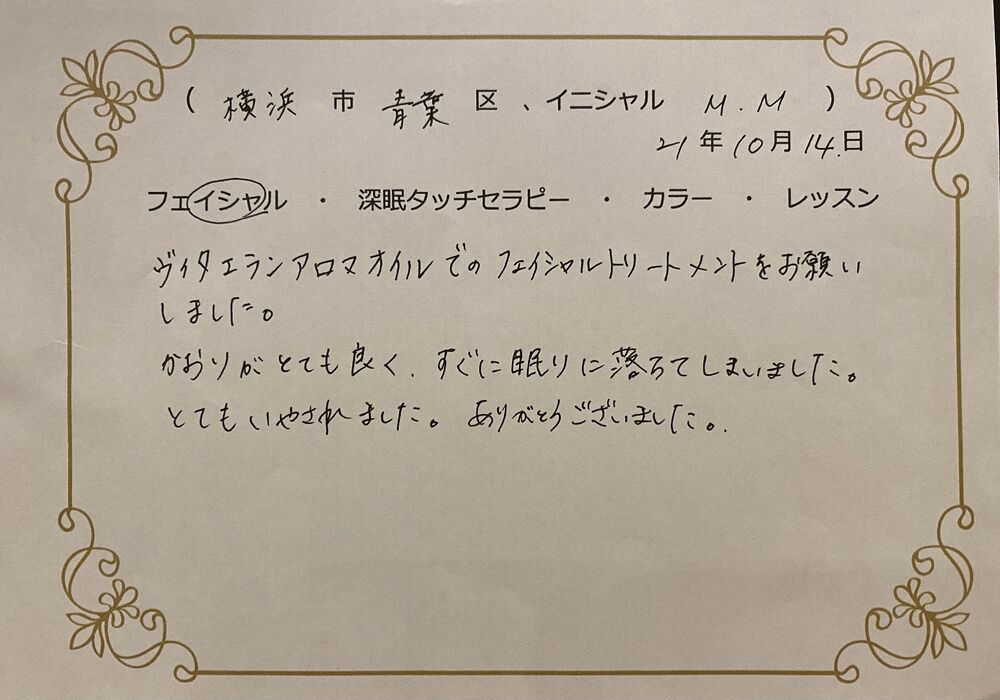 ( 横浜 市 青葉 区 、イニシャル M.M )
21年10月14.日
フェイシャル ・ 深眠タッチセラピー ・ カラー ・ レッスン
ヴィタエランアロマオイルでのフェイシャルトリートメントをお願い
しました。
かおりがとても良く、すぐに眠りに落ちてしまいました。
とてもいやされました。ありがとうございました。.